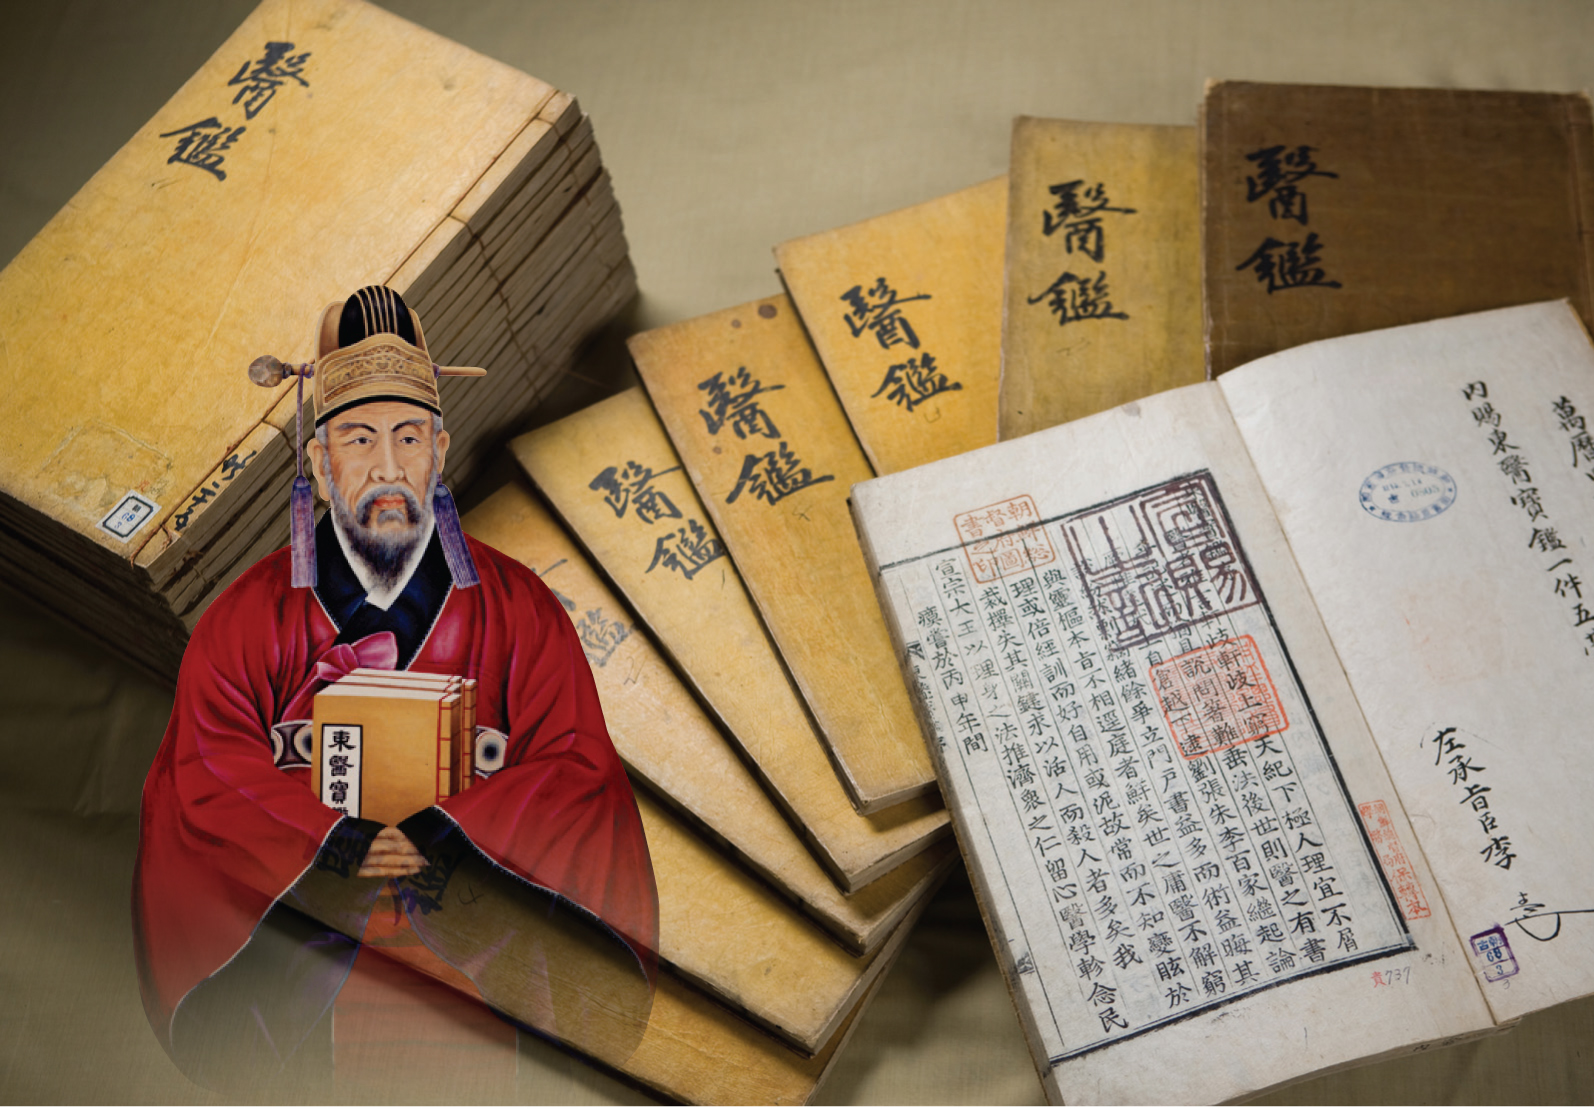 醫鑑
醫鑑
醫鑑
醫鑑
醫鑑
醫鑑
醫鑑
鑑
東醫寶
萬曆
內賜東醫寶鑑一件五
左承旨臣李
朝鮮總督府圖書之印
岐軒岐上窮天紀下極人理宜不屑
說問著難垂法後世則醫之有書
自倉越下逮劉張朱李百家繼起論
緖餘爭立門戶書益多而術益晦其
與靈樞本旨不相逕庭者鮮矣世之庸醫不解窮
理或倍經訓而好自用或泥故常而不知變眩於
裁擇失其關鍵求以活人而殺人者多矣我
宣宗大王以理身之法推濟衆之仁留心醫學軫念民
瘼嘗於丙申年間
貴737
古朝
68
3